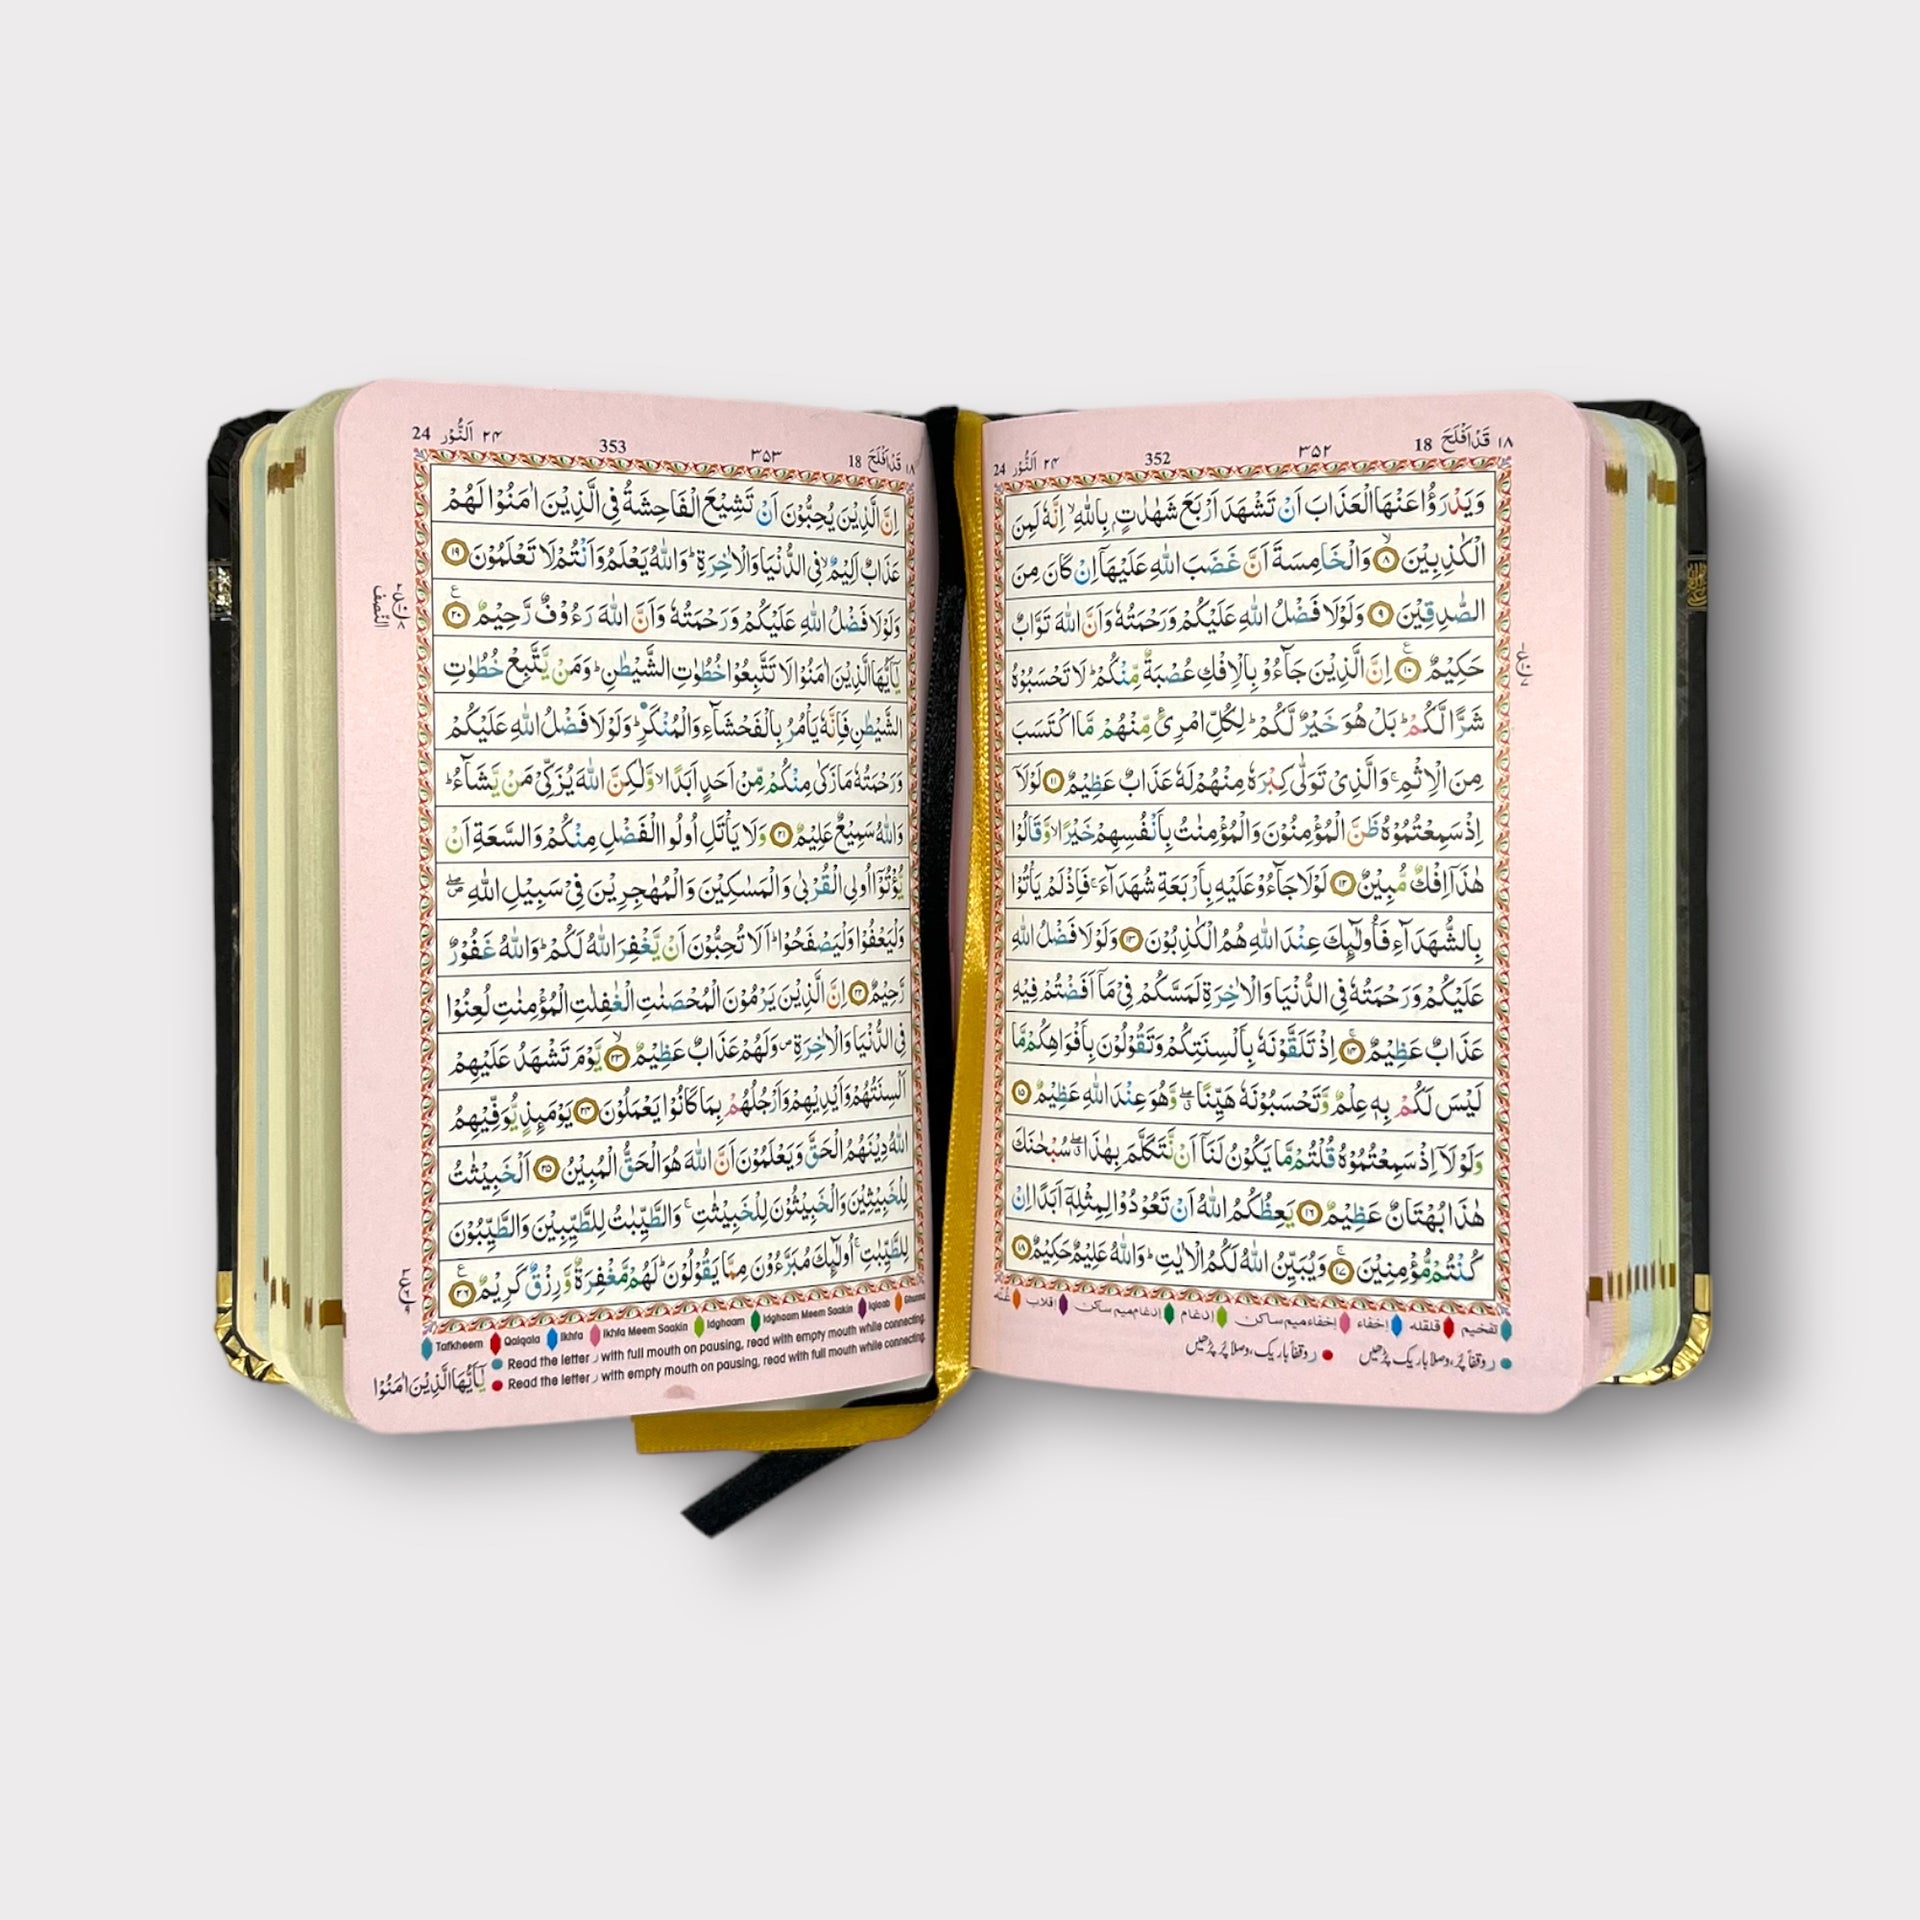 ١٨ قَدْ اَفْلَحَ 18
۳۵۲ 352
٢٤ اَلنُّوْر 24
وَيَدْرَؤُا عَنْهَا الْعَذَابَ اَنْ تَشْهَدَ اَرْبَعَ شَهٰدٰتٍۭ بِاللّٰهِ ۙ اِنَّهٗ لَمِنَ
الْكٰذِبِيْنَ ۙ‏﴿۸﴾ وَالْخَامِسَةَ اَنَّ غَضَبَ اللّٰهِ عَلَيْهَاۤ اِنْ كَانَ مِنَ
الصّٰدِقِيْنَ ﴿۹﴾ وَلَوْلَا فَضْلُ اللّٰهِ عَلَيْكُمْ وَرَحْمَتُهٗ وَاَنَّ اللّٰهَ تَوَّابٌ
حَكِيْمٌ ﴿۱۰﴾ اِنَّ الَّذِيْنَ جَآءُوْ بِالْاِفْكِ عُصْبَةٌ مِّنْكُمْ ؕ لَا تَحْسَبُوْهُ
شَرًّا لَّكُمْ ؕ بَلْ هُوَ خَيْرٌ لَّكُمْ ؕ لِكُلِّ امْرِئٍ مِّنْهُمْ مَّا اكْتَسَبَ
مِنَ الْاِثْمِ ۚ وَالَّذِيْ تَوَلّٰى كِبْرَهٗ مِنْهُمْ لَهٗ عَذَابٌ عَظِيْمٌ ﴿۱۱﴾ لَوْلَاۤ
اِذْ سَمِعْتُمُوْهُ ظَنَّ الْمُؤْمِنُوْنَ وَالْمُؤْمِنٰتُ بِاَنْفُسِهِمْ خَيْرًا ۙ وَّقَالُوْا
هٰذَاۤ اِفْكٌ مُّبِيْنٌ ﴿۱۲﴾ لَوْلَا جَآءُوْ عَلَيْهِ بِاَرْبَعَةِ شُهَدَآءَ ۚ فَاِذْ لَمْ يَاْتُوْا
بِالشُّهَدَآءِ فَاُولٰٓئِكَ عِنْدَ اللّٰهِ هُمُ الْكٰذِبُوْنَ ﴿۱۳﴾ وَلَوْلَا فَضْلُ اللّٰهِ
عَلَيْكُمْ وَرَحْمَتُهٗ فِي الدُّنْيَا وَالْاٰخِرَةِ لَمَسَّكُمْ فِيْ مَاۤ اَفَضْتُمْ فِيْهِ
عَذَابٌ عَظِيْمٌ ۚ‏﴿۱۴﴾ اِذْ تَلَقَّوْنَهٗ بِاَلْسِنَتِكُمْ وَتَقُوْلُوْنَ بِاَفْوَاهِكُمْ مَّا
لَيْسَ لَكُمْ بِهٖ عِلْمٌ وَّتَحْسَبُوْنَهٗ هَيِّنًا ۖ وَّهُوَ عِنْدَ اللّٰهِ عَظِيْمٌ ﴿۱۵﴾
وَلَوْلَاۤ اِذْ سَمِعْتُمُوْهُ قُلْتُمْ مَّا يَكُوْنُ لَنَاۤ اَنْ نَّتَكَلَّمَ بِهٰذَا ۖ سُبْحٰنَكَ
هٰذَا بُهْتَانٌ عَظِيْمٌ ﴿۱۶﴾ يَعِظُكُمُ اللّٰهُ اَنْ تَعُوْدُوْا لِمِثْلِهٖۤ اَبَدًا اِنْ
كُنْتُمْ مُّؤْمِنِيْنَ ۚ‏﴿۱۷﴾ وَيُبَيِّنُ اللّٰهُ لَكُمُ الْاٰيٰتِ ؕ وَاللّٰهُ عَلِيْمٌ حَكِيْمٌ ﴿۱۸﴾
تفخیم قلقله إخفاء إخفاء میم ساکن إدغام إدغام میم ساکن اقلاب غُنّه
ر وقفاً پُر، وصلاً باریک پڑھیں ر وقفاً باریک، وصلاً پُر پڑھیں
١٨ قَدْ اَفْلَحَ 18
۳۵۳ 353
٢٤ اَلنُّوْر 24
اِنَّ الَّذِيْنَ يُحِبُّوْنَ اَنْ تَشِيْعَ الْفَاحِشَةُ فِي الَّذِيْنَ اٰمَنُوْا لَهُمْ
عَذَابٌ اَلِيْمٌ ۙ فِي الدُّنْيَا وَالْاٰخِرَةِ ؕ وَاللّٰهُ يَعْلَمُ وَاَنْتُمْ لَا تَعْلَمُوْنَ ﴿۱۹﴾
وَلَوْلَا فَضْلُ اللّٰهِ عَلَيْكُمْ وَرَحْمَتُهٗ وَاَنَّ اللّٰهَ رَءُوْفٌ رَّحِيْمٌ ﴿۲۰﴾
يٰۤاَيُّهَا الَّذِيْنَ اٰمَنُوْا لَا تَتَّبِعُوْا خُطُوٰتِ الشَّيْطٰنِ ؕ وَمَنْ يَّتَّبِعْ خُطُوٰتِ
الشَّيْطٰنِ فَاِنَّهٗ يَاْمُرُ بِالْفَحْشَآءِ وَالْمُنْكَرِ ؕ وَلَوْلَا فَضْلُ اللّٰهِ عَلَيْكُمْ
وَرَحْمَتُهٗ مَا زَكٰى مِنْكُمْ مِّنْ اَحَدٍ اَبَدًا ۙ وَّلٰكِنَّ اللّٰهَ يُزَكِّيْ مَنْ يَّشَآءُ ؕ
وَاللّٰهُ سَمِيْعٌ عَلِيْمٌ ﴿۲۱﴾ وَلَا يَاْتَلِ اُولُوا الْفَضْلِ مِنْكُمْ وَالسَّعَةِ اَنْ
يُّؤْتُوْۤا اُولِي الْقُرْبٰى وَالْمَسٰكِيْنَ وَالْمُهٰجِرِيْنَ فِيْ سَبِيْلِ اللّٰهِ ۖ
وَلْيَعْفُوْا وَلْيَصْفَحُوْا ؕ اَلَا تُحِبُّوْنَ اَنْ يَّغْفِرَ اللّٰهُ لَكُمْ ؕ وَاللّٰهُ غَفُوْرٌ
رَّحِيْمٌ ﴿۲۲﴾ اِنَّ الَّذِيْنَ يَرْمُوْنَ الْمُحْصَنٰتِ الْغٰفِلٰتِ الْمُؤْمِنٰتِ لُعِنُوْا
فِي الدُّنْيَا وَالْاٰخِرَةِ ۪ وَلَهُمْ عَذَابٌ عَظِيْمٌ ۙ‏﴿۲۳﴾ يَّوْمَ تَشْهَدُ عَلَيْهِمْ
اَلْسِنَتُهُمْ وَاَيْدِيْهِمْ وَاَرْجُلُهُمْ بِمَا كَانُوْا يَعْمَلُوْنَ ﴿۲۴﴾ يَوْمَئِذٍ يُّوَفِّيْهِمُ
اللّٰهُ دِيْنَهُمُ الْحَقَّ وَيَعْلَمُوْنَ اَنَّ اللّٰهَ هُوَ الْحَقُّ الْمُبِيْنُ ﴿۲۵﴾ اَلْخَبِيْثٰتُ
لِلْخَبِيْثِيْنَ وَالْخَبِيْثُوْنَ لِلْخَبِيْثٰتِ ۚ وَالطَّيِّبٰتُ لِلطَّيِّبِيْنَ وَالطَّيِّبُوْنَ
لِلطَّيِّبٰتِ ۚ اُولٰٓئِكَ مُبَرَّءُوْنَ مِمَّا يَقُوْلُوْنَ ؕ لَهُمْ مَّغْفِرَةٌ وَّرِزْقٌ كَرِيْمٌ ﴿۲۶﴾
Tafkheem Qalqala Ikhfa Ikhfa Meem Saakin Idghaam Idghaam Meem Saakin Iqlaab Ghunna
Read the letter ر with full mouth on pausing, read with empty mouth while connecting.
Read the letter ر with empty mouth on pausing, read with full mouth while connecting.
يٰۤاَيُّهَا الَّذِيْنَ اٰمَنُوْا
النّصف